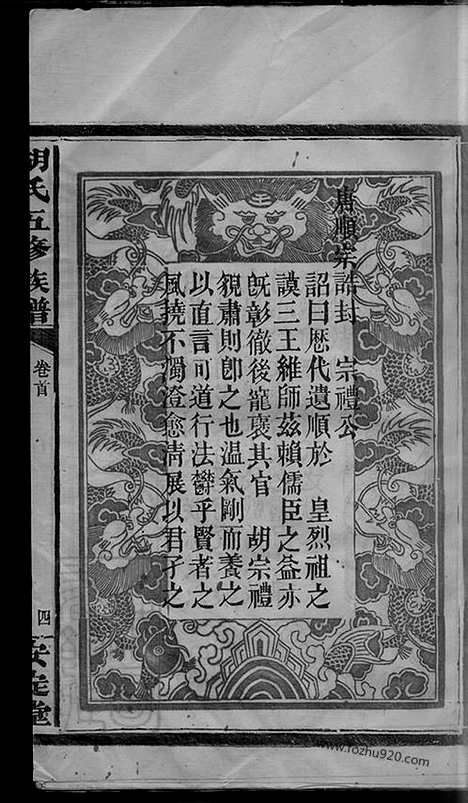 唐順宗誥封　宗禮公
詔曰歴代遺順於　皇烈祖之
謨三王維師茲賴儒臣之益亦
旣彰徹後寵褒其官　胡宗禮
貌肅則卽之也溫氣剛而養之
以直言可道行法鬱乎賢者之
風撓不濁澄愈淸展以君子之
胡氏五修族譜
卷首
四
安定堂
www.fozhu920.com